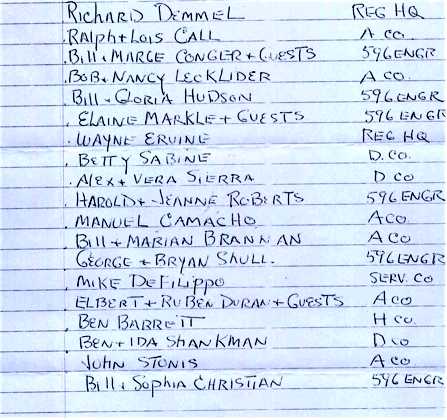 RICHARD DEMMEL REG HQ
RALPH + LOIS CALL A CO.
Bill + MARGE CONGLER + GUESTS 596 ENGR
BOB + NANCY LECKLIDER A CO.
Bill + GLORIA HUDSON 596 ENGR
ELAINE MARKLE + GUESTS 596 ENGR
WAYNE ERVINE REG HQ
BETTY SABINE D. CO.
ALEX + VERA SIERRA D CO
HAROLD + JEANNE ROBERTS 596 ENGR
MANUEL CAMACHO A CO.
Bill + MARIAN BRANNAN A CO
GEORGE + BRYAN SHULL. 596 ENGR
MIKE DEFILIPPO SERV. CO
ELBERT + RUBEN DURAN + GUESTS A CO
BEN BARRETT H CO.
BEN + IDA SHANKMAN D CO
JOHN STONIS A CO
Bill + SOPHIA CHRISTIAN 596 ENGR